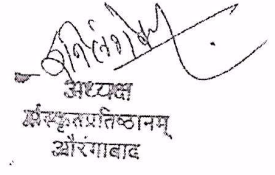 अध्यक्ष
संस्कृतप्रतिष्ठानम्
औरंगाबाद